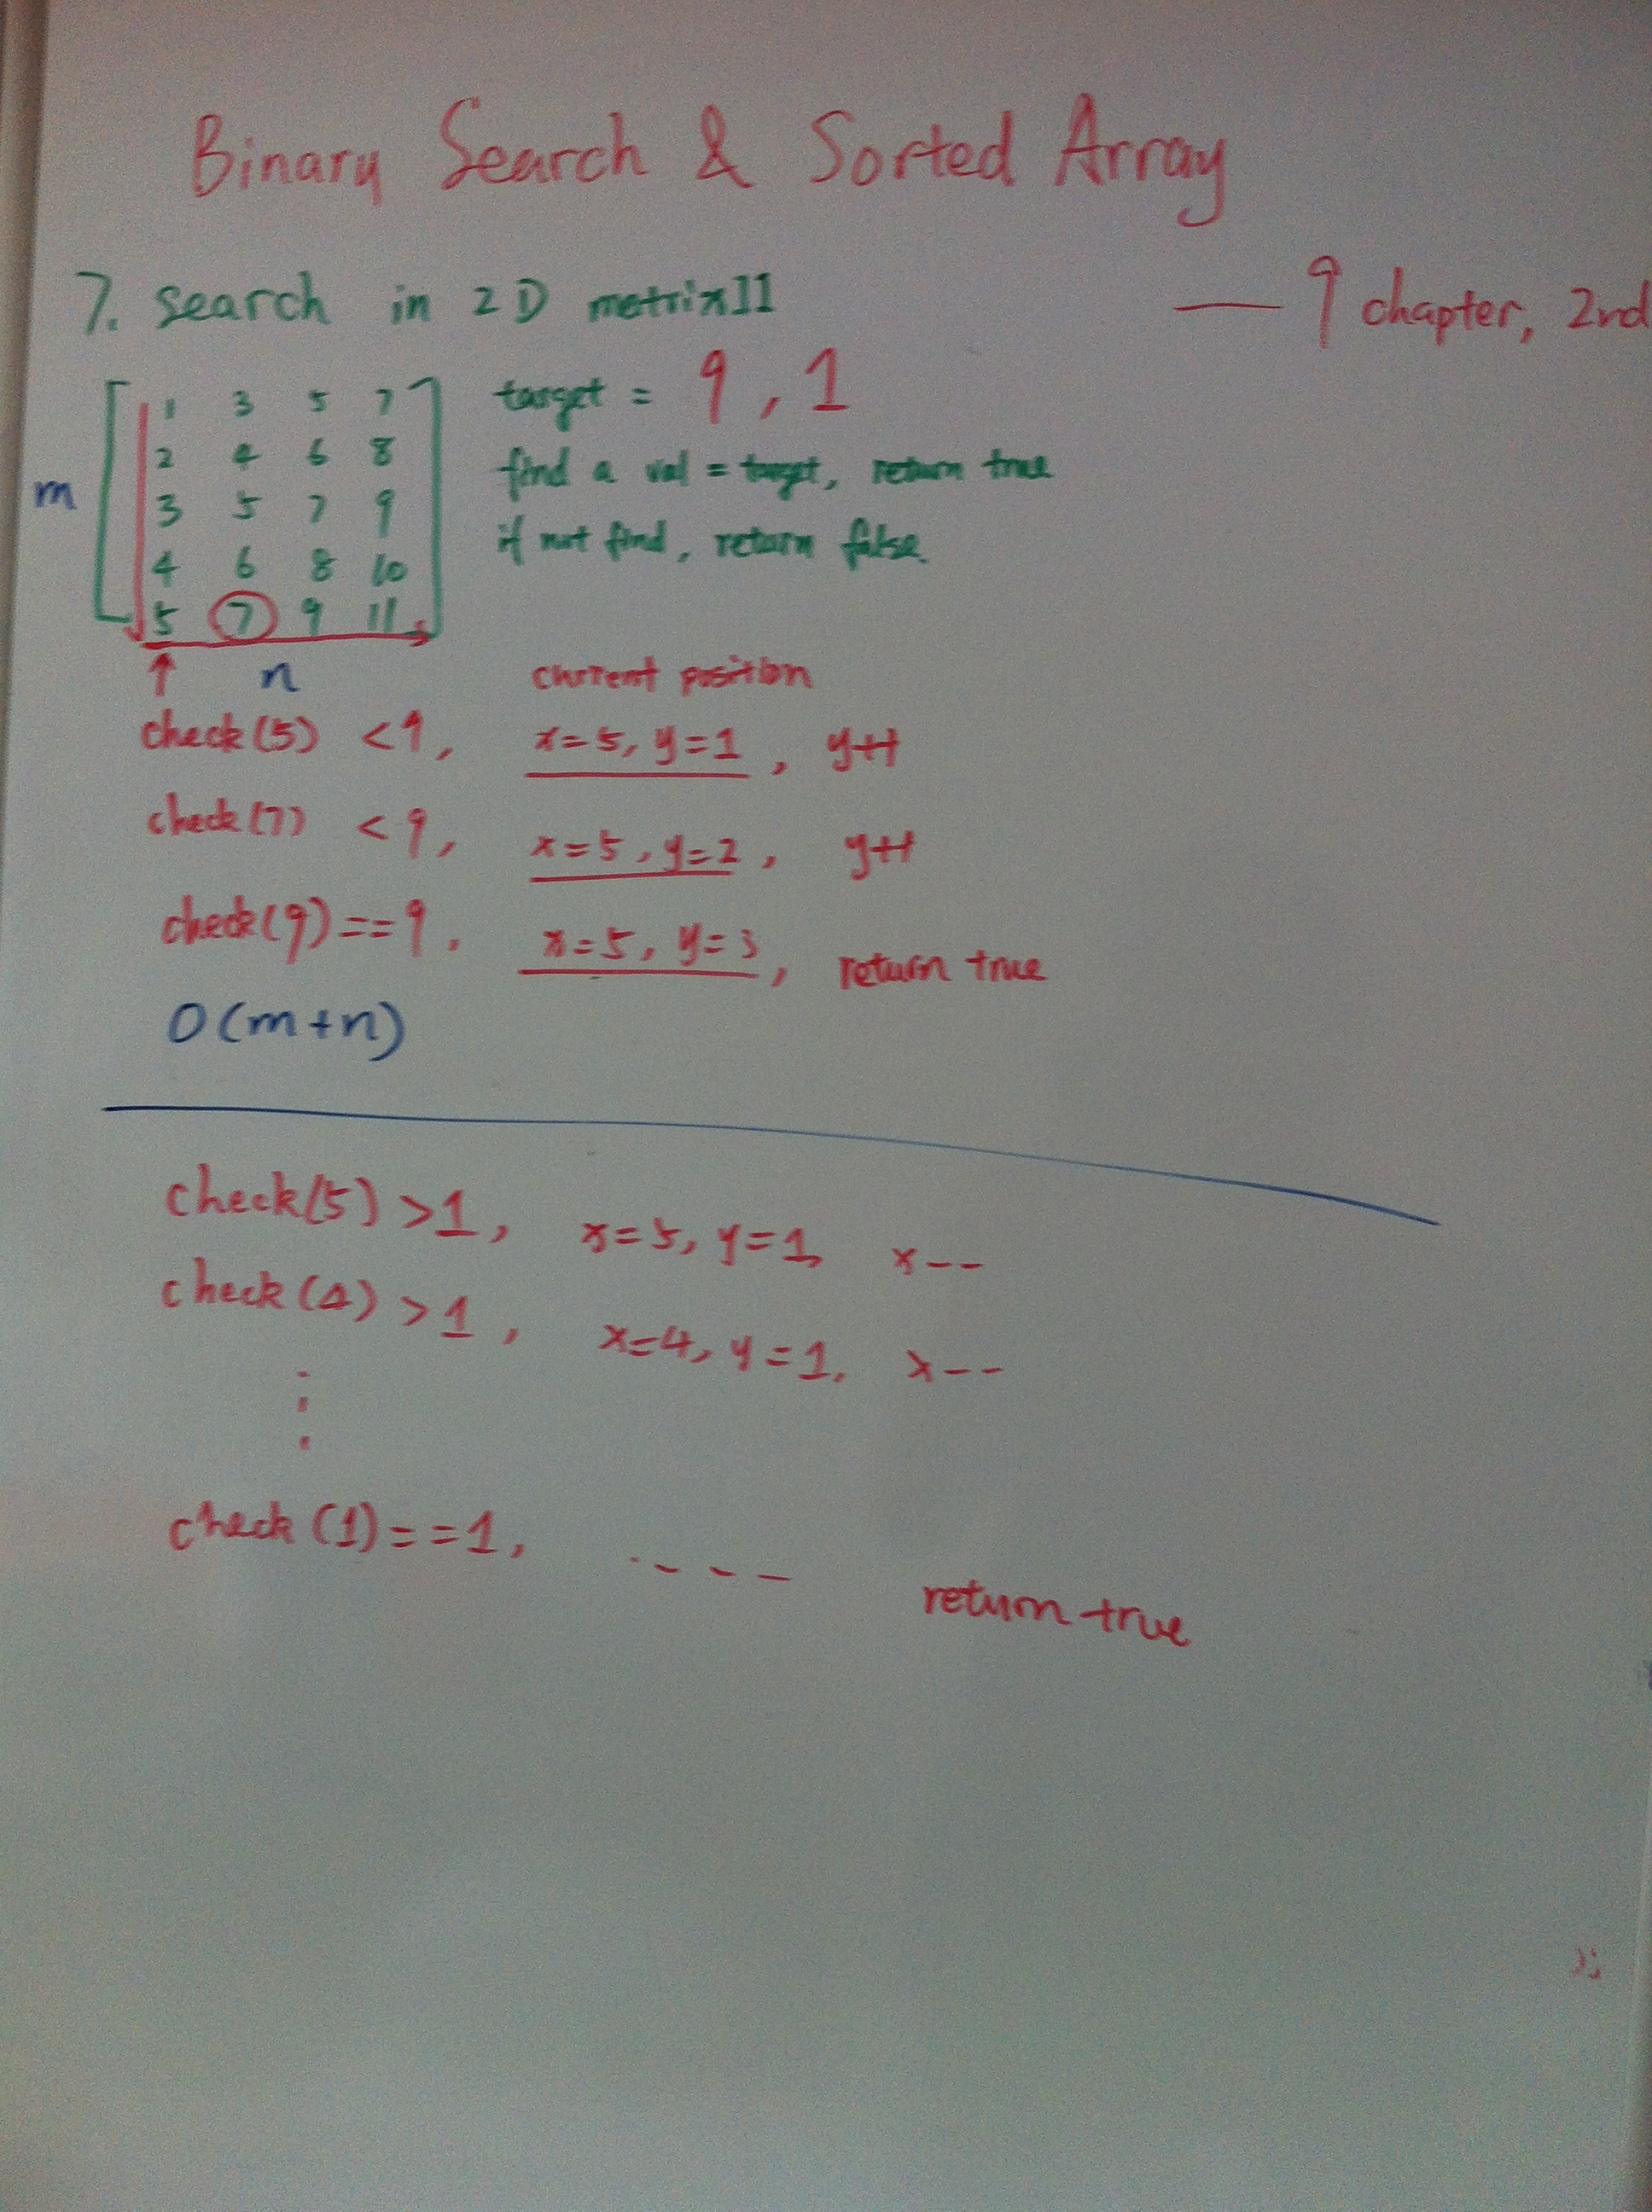 Binary Search & Sorted Array
— 9 chapter, 2nd
7. search in 2D metrixII
1 3 5 7
2 4 6 8
3 5 7 9
4 6 8 10
5 7 9 11
m
n
target = 9, 1
find a val = target, return true
if not find, return false.
current position
check(5) <9, x=5, y=1, y++
check(7) <9, x=5, y=2, y++
check(9)==9. x=5, y=3, return true
O(m+n)
check(5) >1, x=5, y=1, x--
check(4) >1, x=4, y=1. x--
check(1)==1, ---- return true